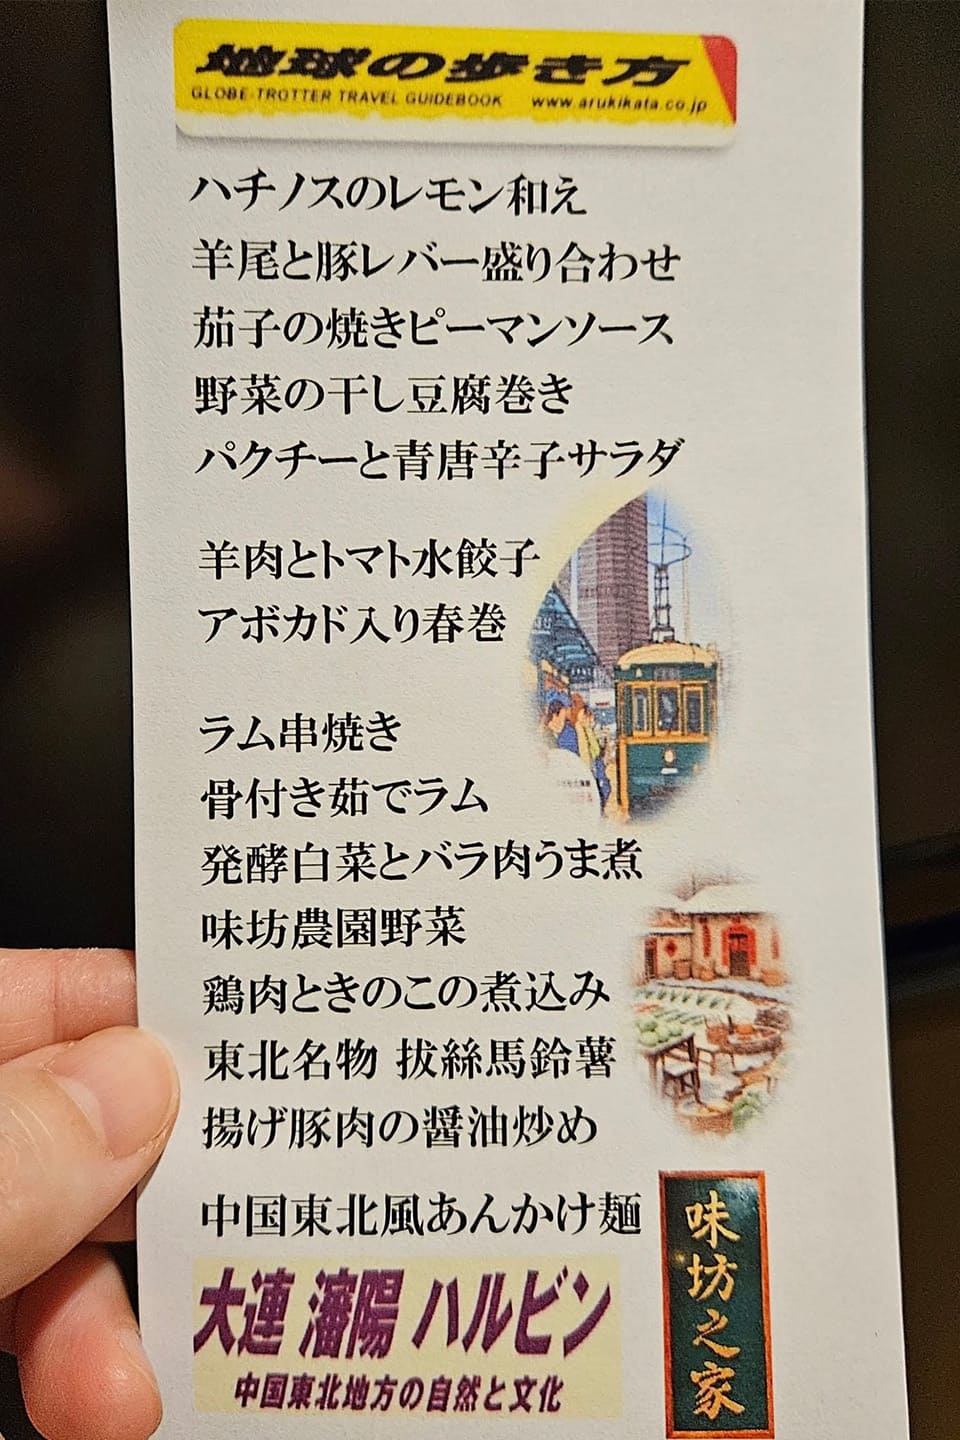 地球の歩き方
GLOBE-TROTTER TRAVEL GUIDEBOOK www.arukikata.co.jp
ハチノスのレモン和え
羊尾と豚レバー盛り合わせ
茄子の焼きピーマンソース
野菜の干し豆腐巻き
パクチーと青唐辛子サラダ
羊肉とトマト水餃子
アボカド入り春巻
ラム串焼き
骨付き茹でラム
発酵白菜とバラ肉うま煮
味坊農園野菜
鶏肉ときのこの煮込み
東北名物 拔絲馬鈴薯
揚げ豚肉の醤油炒め
中国東北風あんかけ麺
大連 瀋陽 ハルビン
中国東北地方の自然と文化
味坊之家